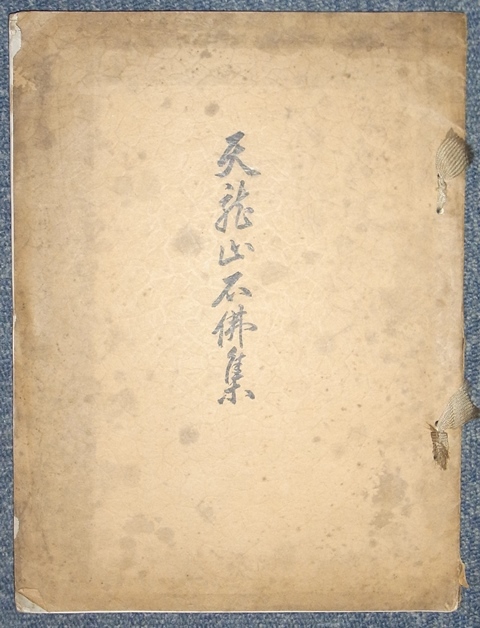 天龍山石佛集